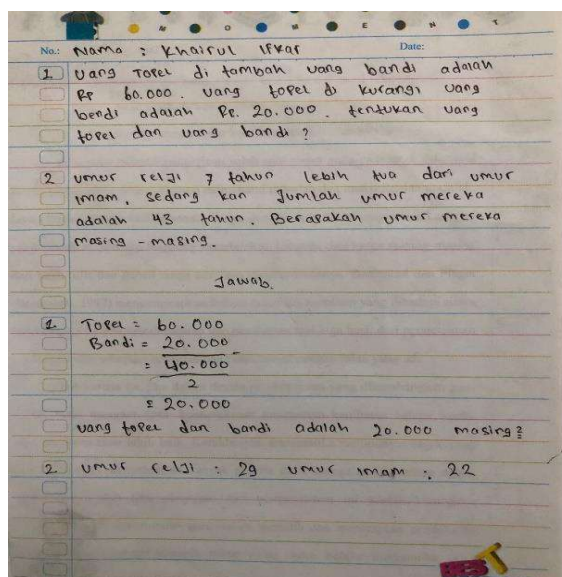 M O M E N T
No.: Nama : Khairul Ifkar Date:
1 Uang Topel di tambah uang bandi adalah
Rp 60.000. uang topel di kurangi uang
bendi adalah Rp. 20.000. tentukan uang
topel dan uang bandi ?
2 umur relji 7 tahun lebih tua dari umur
imam, sedang kan Jumlah umur mereka
adalah 43 tahun. Berapakah umur mereka
masing - masing.
Jawab.
1 Topel = 60.000
Bandi = 20.000 -
= 40.000
2
= 20.000
uang topel dan bandi adalah 20.000 masing2
2 umur relji : 29 umur imam : 22